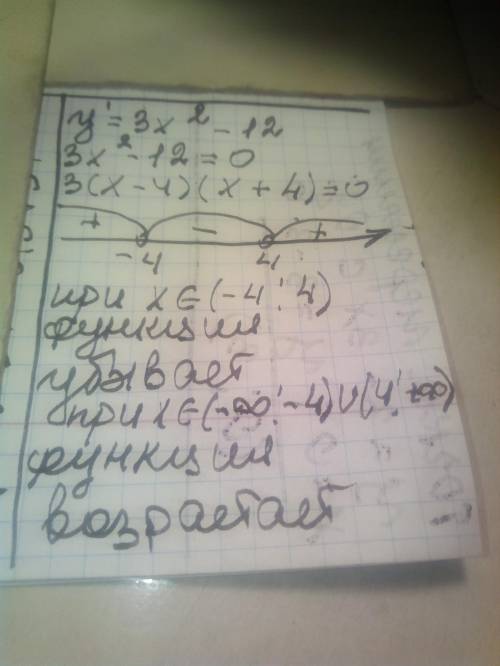 y' = 3x² - 12
3x² - 12 = 0
3(x - 4)(x + 4) = 0
+ - +
-4 4
при x ∈ (-4; 4)
функция
убывает
при x ∈ (-∞; -4) ∪ (4; +∞)
функция
возрастает